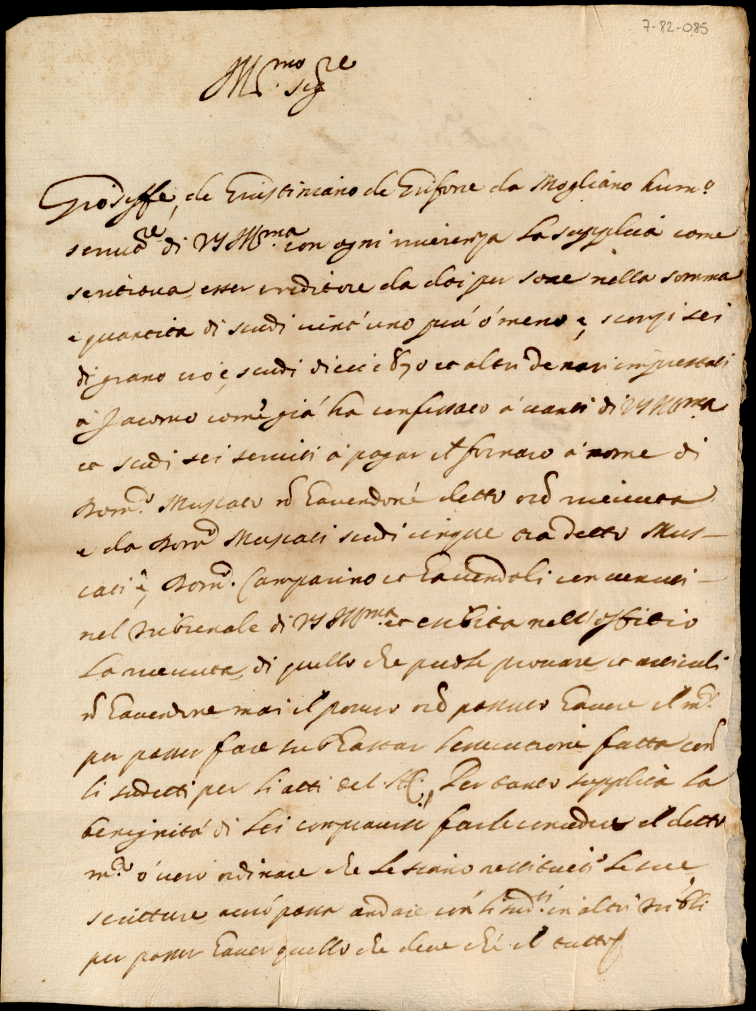 7-82-085
Ill.mo Sig.re
Gioseffe de Giustiniano de da Mogliano hum.o
servit.re di VS Ill.ma con ogni riverenza la supplica come
esser creditore da doi persone nella somma
e quantita di scudi vint'uno più ò meno e,
di grano cioè, scudi dieci 870 et altri denari imprestati
à Jacomo come già ha confessato à vanti di VS Ill.ma
et scudi sei serviti à pagar il fornaro à nome di
Dom.o Muscato nō havendone detto oīo riceuuta
e da Dom.o Muscati scudi cinque ora detto Mus-
cati è, Dom.o Camparino et havendoli convenuti
nel tribunale di VS Ill.ma et esibita nell'offitio
la riceuuta, di quello che puole provare, et articoli
nō havendone mai il povero oīo possuto havere il m.to
per posser fare subhastar l'essecutione fatta con
li sudetti per li atti del Pertanto supplica la
benignità di lei farle concedere il detto
m.to ò vero ordinare che le siano restituite le sue
scritture acciò possa andare con li sud.ti in altri trib.li
per posser haver quello che deve ché il tutto